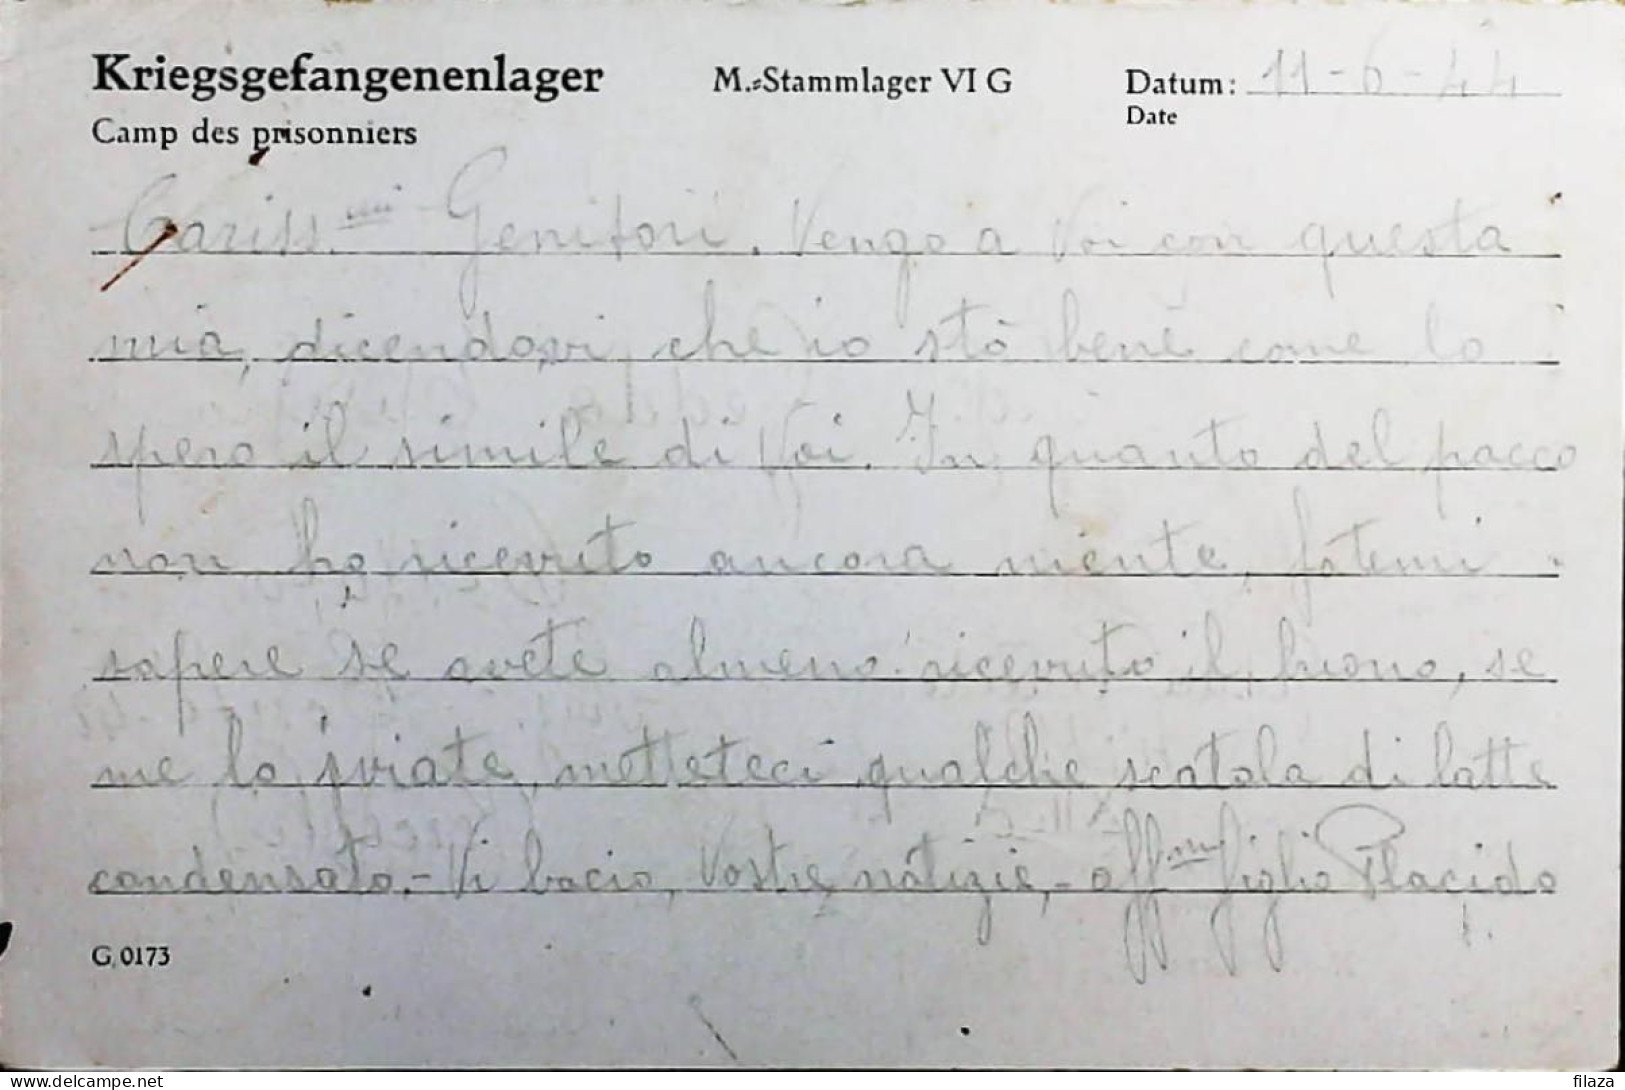 Kriegsgefangenenlager M.-Stammlager VI G Datum: 11-6-44
Camp des prisonniers Date
Cariss.mi Genitori. Vengo a Voi con questa
mia, dicendovi, che io stò bene come lo
spero il simile di Voi. In quanto del pacco
non ho ricevuto ancora niente, fatemi
sapere se avete almeno ricevuto il buono, se
me lo inviate, metteteci qualche scatola di latte
condensato.- Vi bacio, Vostre notizie,- aff.mo figlio Placido
G. 0173
filaza
delcampe.net